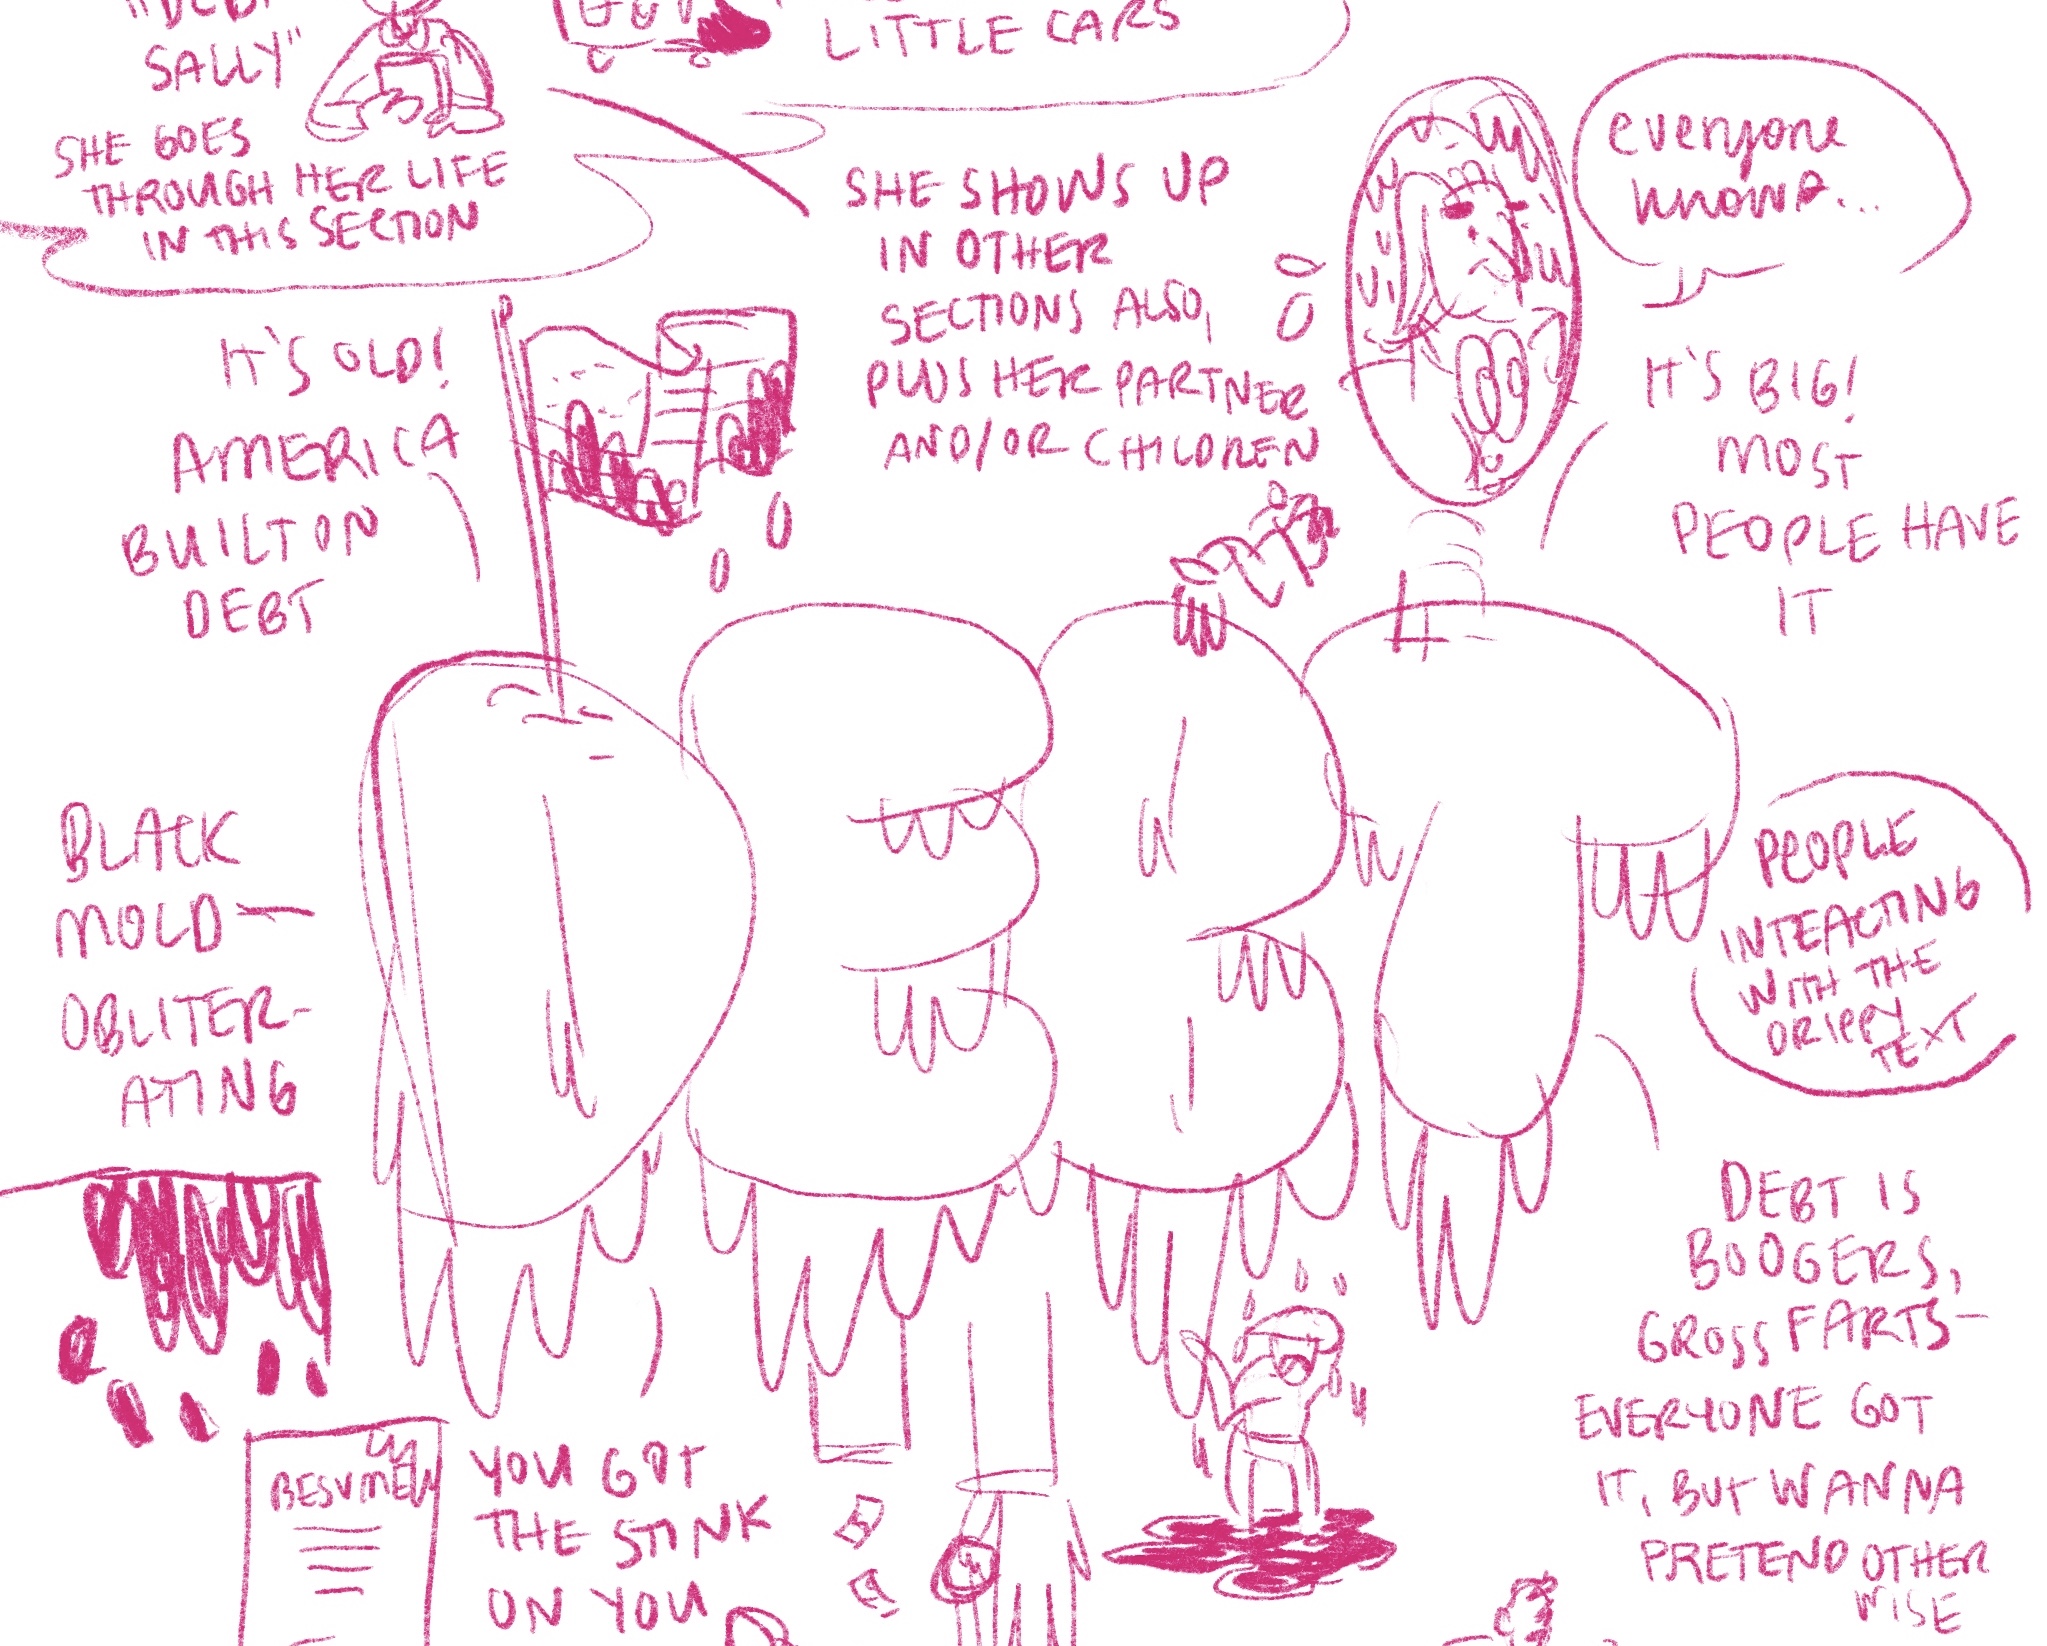 SALLY"
SHE GOES
THROUGH HER LIFE
IN THIS SECTION
LITTLE CARS
SHE SHOWS UP
IN OTHER
SECTIONS ALSO,
PLUS HER PARTNER
AND/OR CHILDREN
everyone
IT'S BIG!
MOST
PEOPLE HAVE
IT
IT'S OLD!
AMERICA
BUILT ON
DEBT
DEBT
BLACK
MOLD—
OBLITER-
ATING
PEOPLE
INTEACTING
WITH THE
DRIPPY
TEXT
DEBT IS
BOOGERS,
GROSS FARTS—
EVERYONE GOT
IT, BUT WANNA
PRETEND OTHER
WISE
YOU GOT
THE STINK
ON YOU